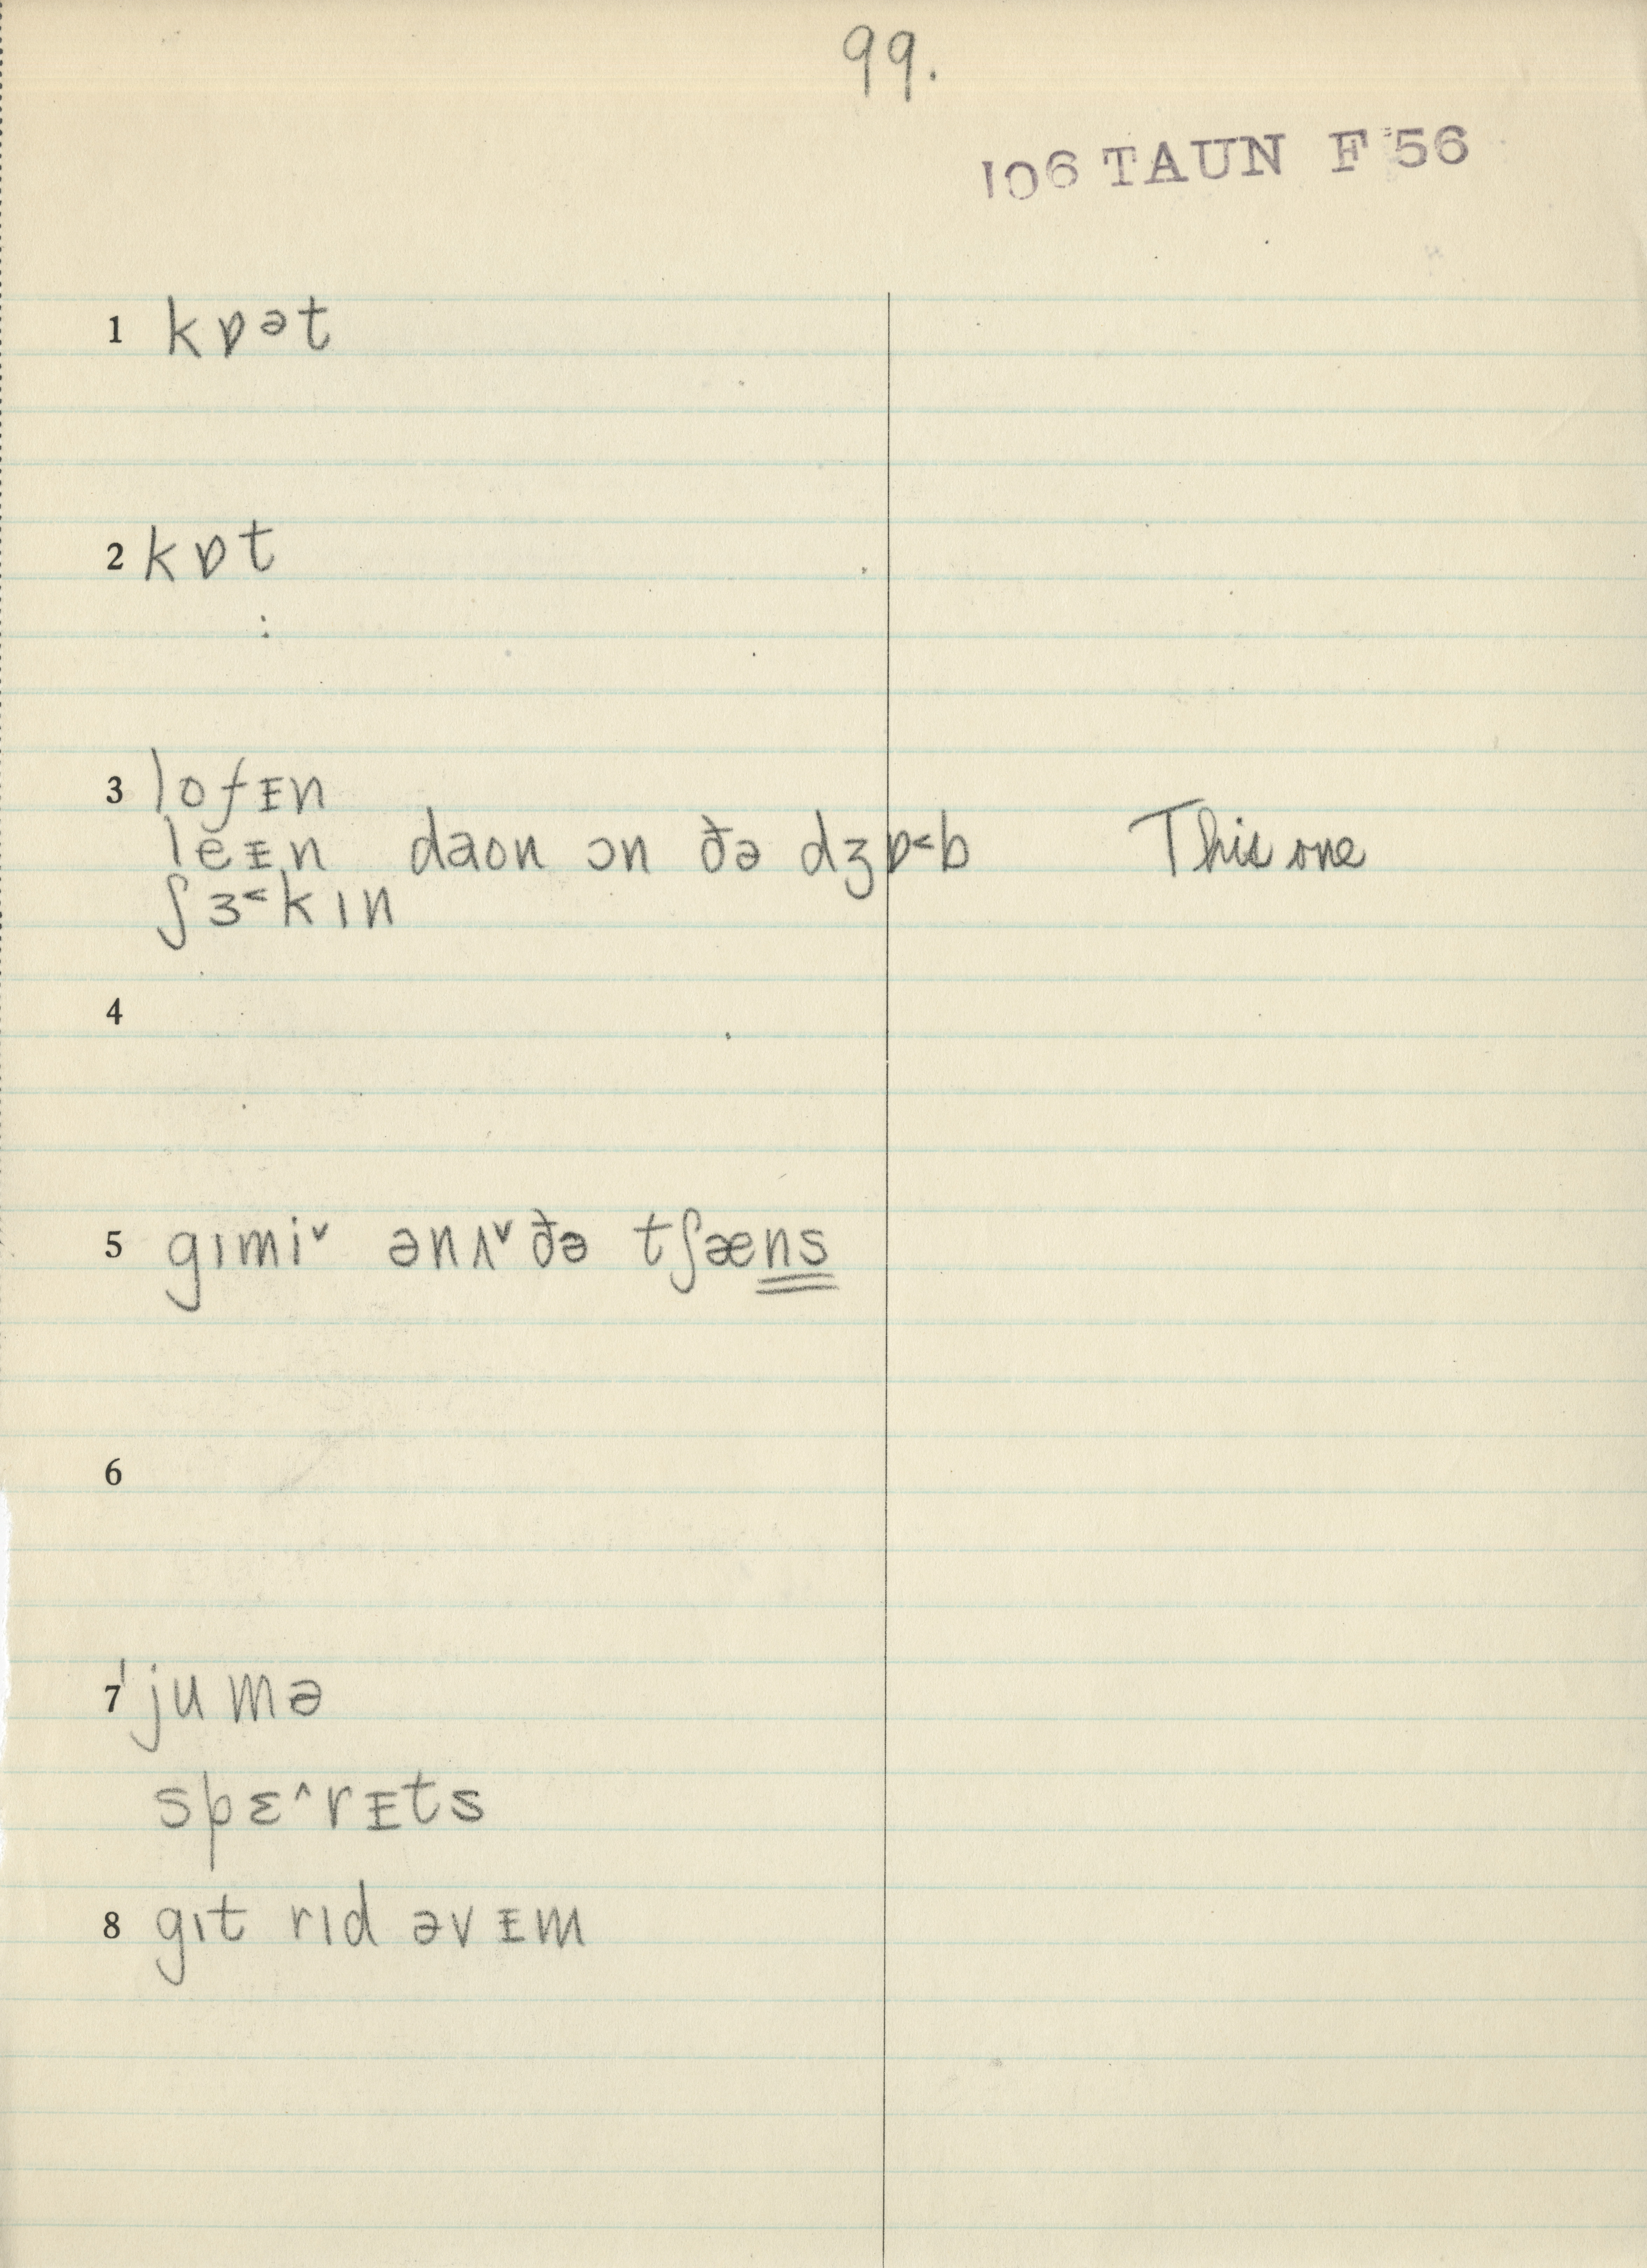 99.
106 TAUN F 56
1 kɒət
2 kɒt
3 lofᵻn
leᵻn daʊn ɔn ðə dʒɒ˂b This one
ʃɜ˂kɪn
4
5 gɪmiˇ ənʌˇðə tʃæns
6
7 ˈjumə
spɛ˄rᵻts
8 gɪt rɪd əvᵻm